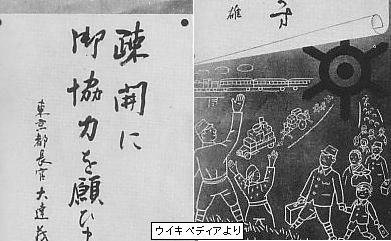 疎開に
御協力を願ひま
東京都長官大達茂
す
雄
ウイキペディアより